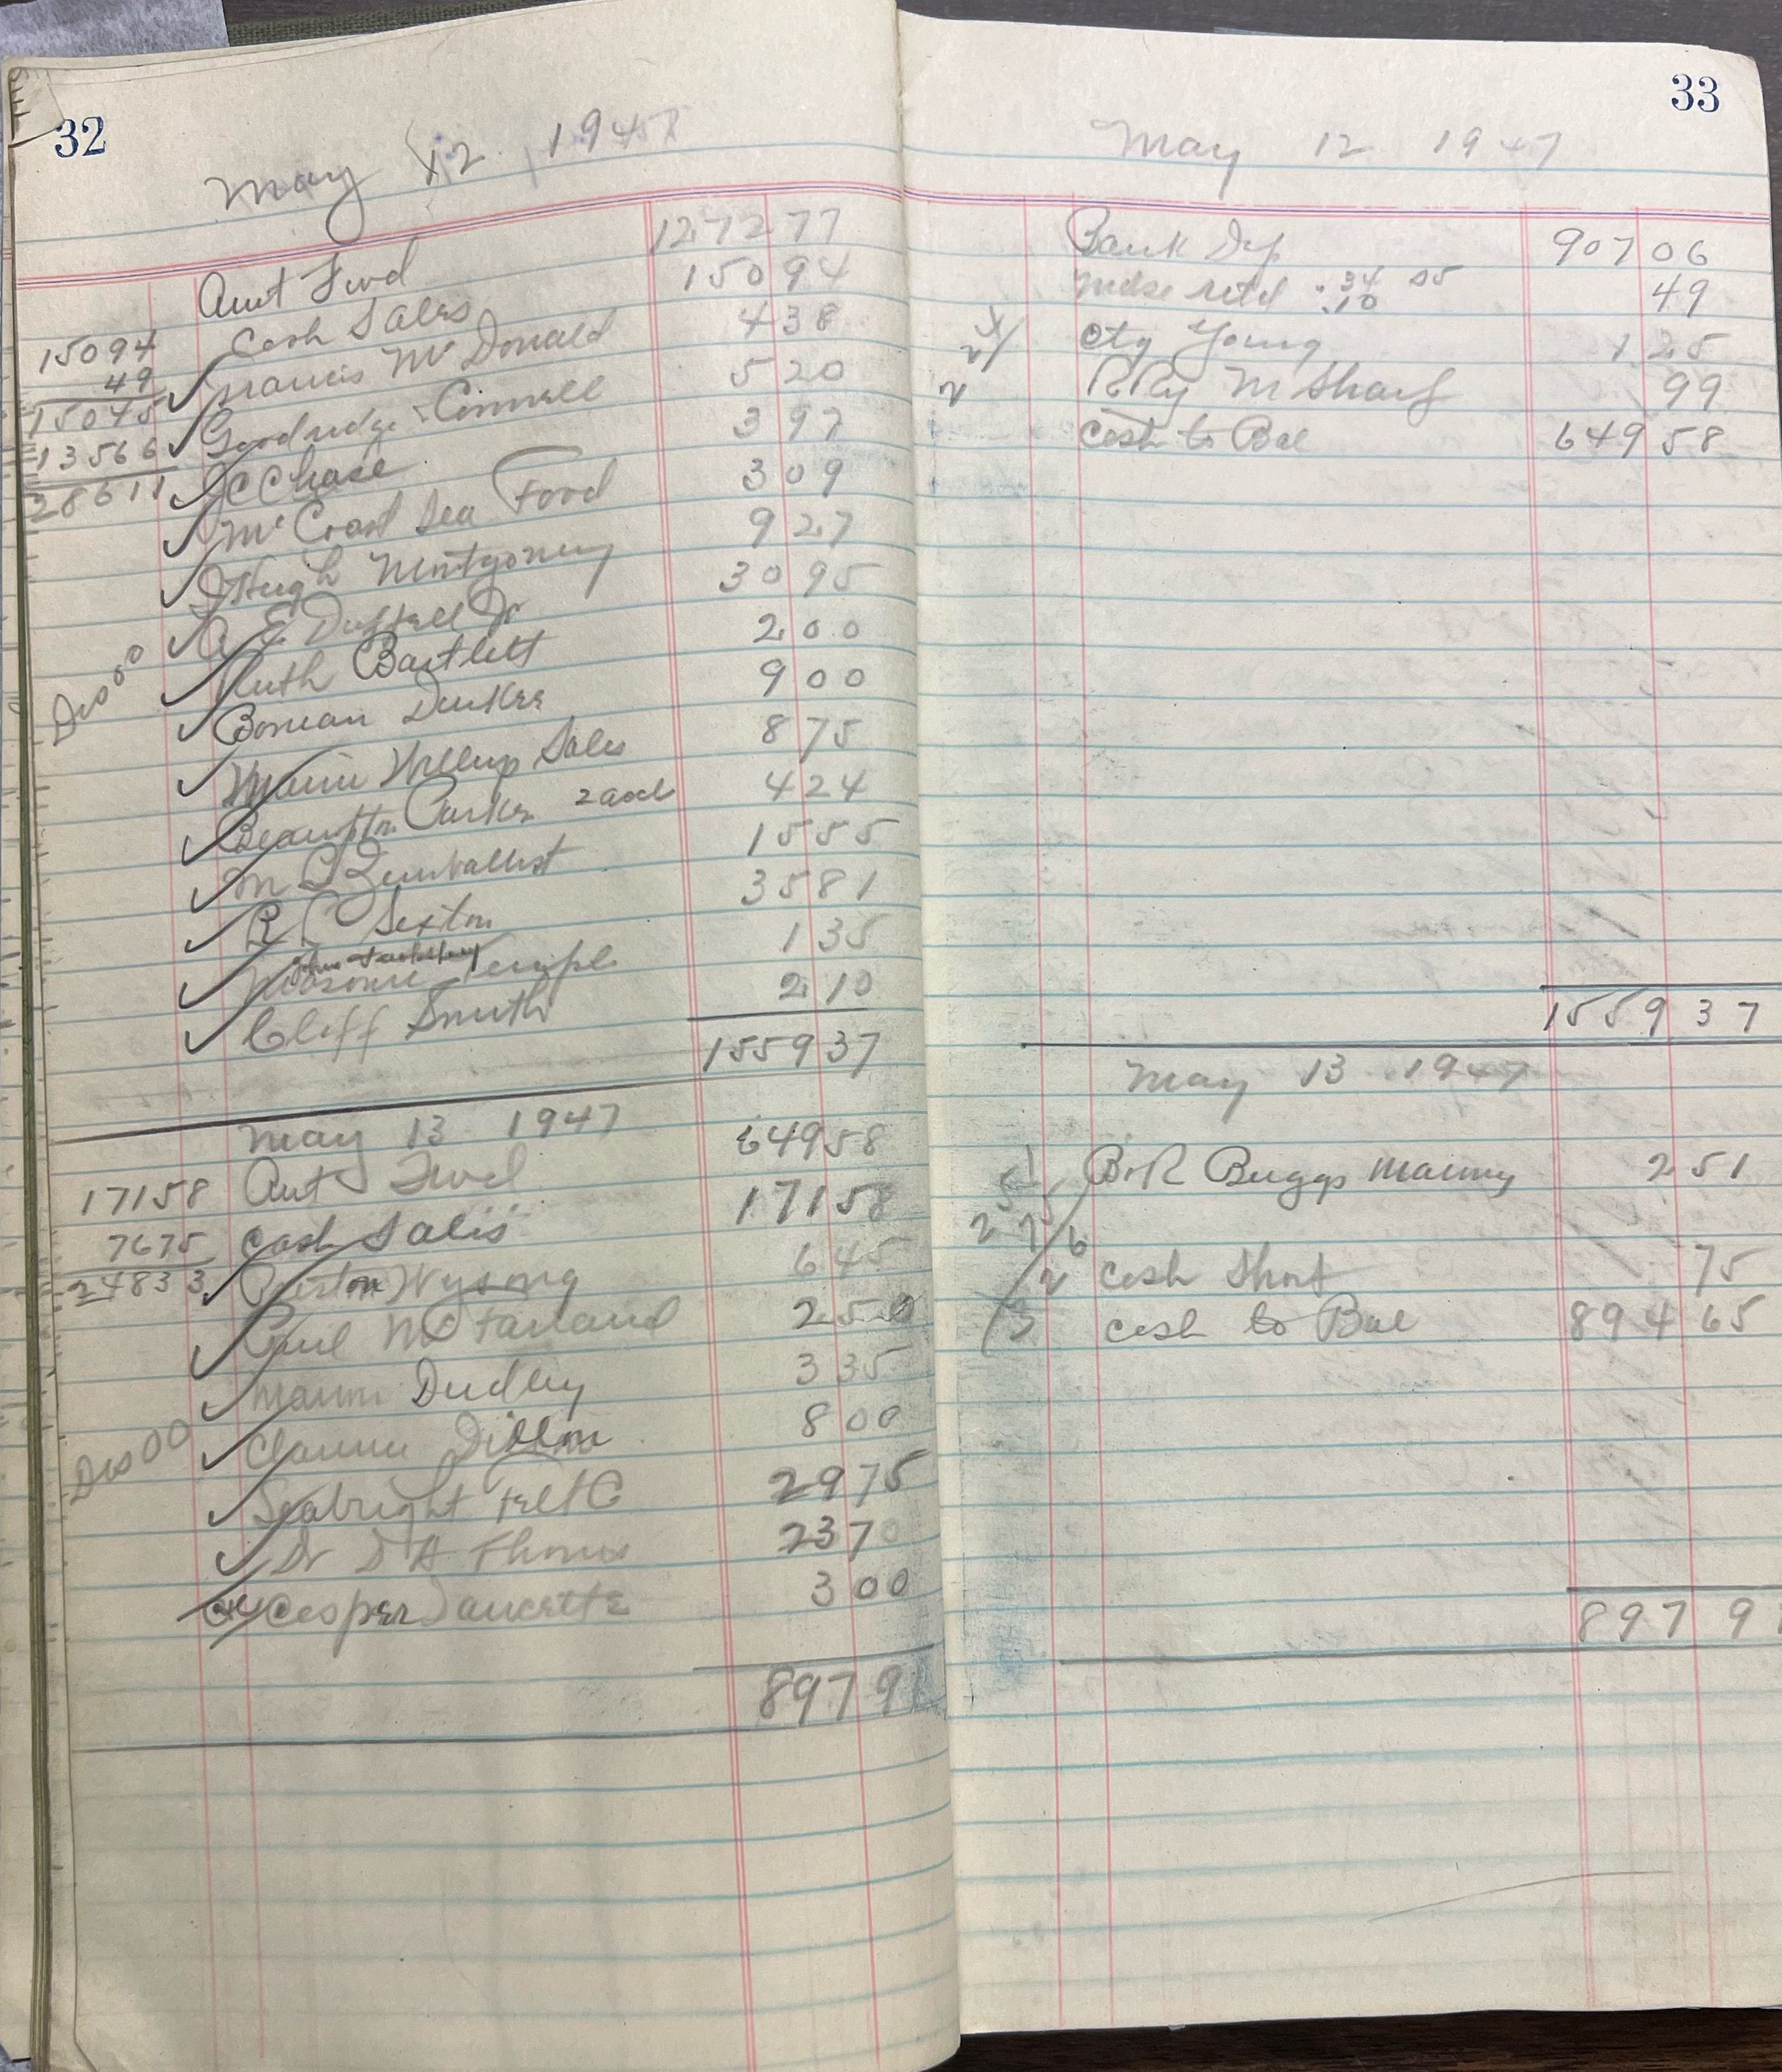 32
May 12 1947
Amt Fwd 1272 77
15094 Cash Sales 150 94
49 Francis McDonald 4 38
15045 Goodridge & Connell 5 20
13566 C Chase 3 97
28611 Mc Coast Sea Food 3 09
Hugh Montgomery 9 27
A E Duffell Jr 30 95
Dis 60 Ruth Bartlett 2 00
Boman Dunker 9 00
Sales 8 75
Parker 2 acct 4 24
M L 15 55
R C Sexton 35 81
Masonic Temple 1 35
Cliff Smith 2 10
1559 37
May 13 1947
Amt Fwd 649 58
17158 Cash Sales 171 58
7675 Preston Wysong 6 45
24833 Paul McFarland 2 50
Mann Dudley 3 35
Dis 00 Dillon 8 00
Seabright 29 75
Dr D H Thomas 23 70
Casper Faucette 3 00
897 91
33
May 12 1947
Bank Dep 907 06
Mdse retd .34 05 49
.10
Ctg Young 1 25
RRy M Sharf 99
Cash to Bal 649 58
1559 37
May 13 1947
B & R Buggs Manny 2 51
Cash Short 75
Cash to Bal 894 65
897 9